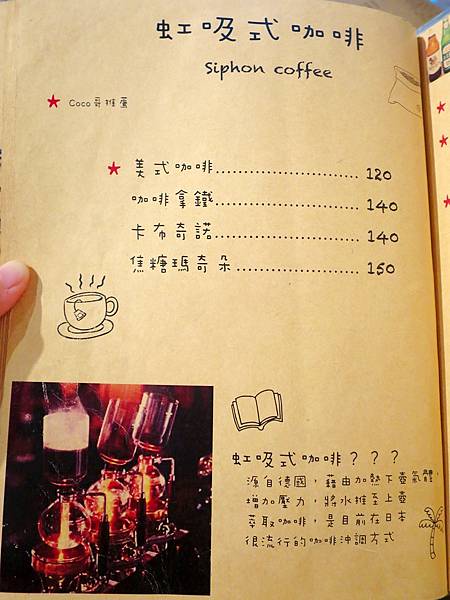 虹吸式咖啡
Siphon coffee
★ Coco哥推薦
★ 美式咖啡........................ 120
咖啡拿鐵........................ 140
卡布奇諾........................ 140
焦糖瑪奇朵..................... 150
虹吸式咖啡？？？
源自德國，藉由加熱下壺氣體，
增加壓力，將水推至上壺
萃取咖啡，是目前在日本
很流行的咖啡沖調方式